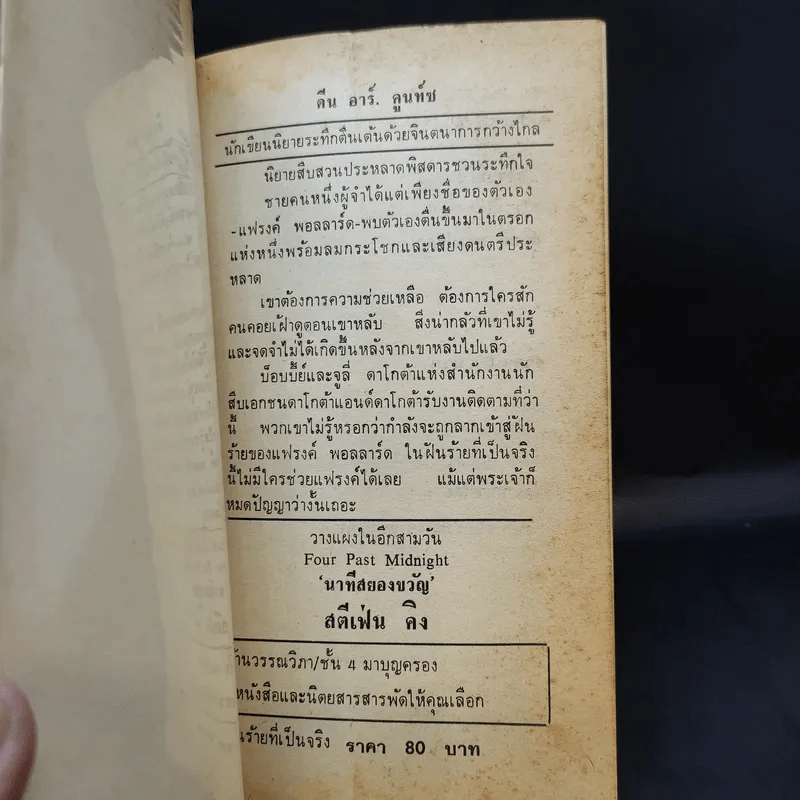 ดีน อาร์. คูนท์ซ
นักเขียนนิยายระทึกตื่นเต้นด้วยจินตนาการกว้างไกล
นิยายสืบสวนประหลาดพิสดารชวนระทึกใจ
ชายคนหนึ่งผู้จำได้แต่เพียงชื่อของตัวเอง
-แฟรงค์ พอลลาร์ด-พบตัวเองตื่นขึ้นมาในตรอก
แห่งหนึ่งพร้อมลมกระโชกและเสียงดนตรีประ
หลาด
เขาต้องการความช่วยเหลือ ต้องการใครสัก
คนคอยเฝ้าดูตอนเขาหลับ สิ่งน่ากลัวที่เขาไม่รู้
และจดจำไม่ได้เกิดขึ้นหลังจากเขาหลับไปแล้ว
บ็อบบี้ย์และจูลี่ ดาโกต้าแห่งสำนักงานนัก
สืบเอกชนดาโกต้าแอนด์ดาโกต้ารับงานติดตามที่ว่า
นี้ พวกเขาไม่รู้หรอกว่ากำลังจะถูกลากเข้าสู่ฝัน
ร้ายของแฟรงค์ พอลลาร์ด ในฝันร้ายที่เป็นจริง
นี้ไม่มีใครช่วยแฟรงค์ได้เลย แม้แต่พระเจ้าก็
หมดปัญญาว่างั้นเถอะ
วางแผงในอีกสามวัน
Four Past Midnight
'นาทีสยองขวัญ'
สตีเฟ่น คิง
วรรณวิภา/ชั้น 4 มาบุญครอง
หนังสือและนิตยสารสารพัดให้คุณเลือก
ร้ายที่เป็นจริง ราคา 80 บาท